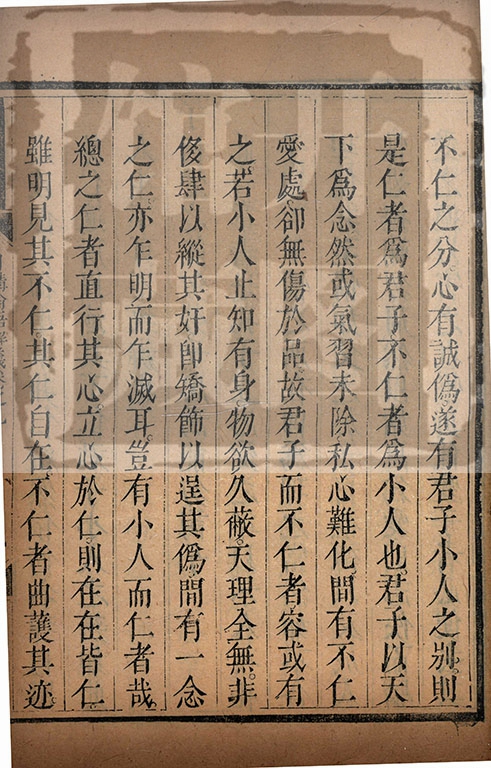 不仁之分。心有誠偽。遂有君子小人之別。則
是仁者爲君子。不仁者爲小人也。君子以天
下爲念。然或氣習未除。私心難化。間有不仁
愛處。卻無傷於品。故君子而不仁者容或有
之。若小人止知有身。物欲久蔽。天理全無。非
後肆以縱其奸。卽矯飾以逞其偽。間有一念
之仁。亦乍明而乍滅耳。豈有小人而仁者哉。
總之仁者直行其心。立心於仁。則在在皆仁。
雖明見其不仁。其仁自在。不仁者曲護其迹。